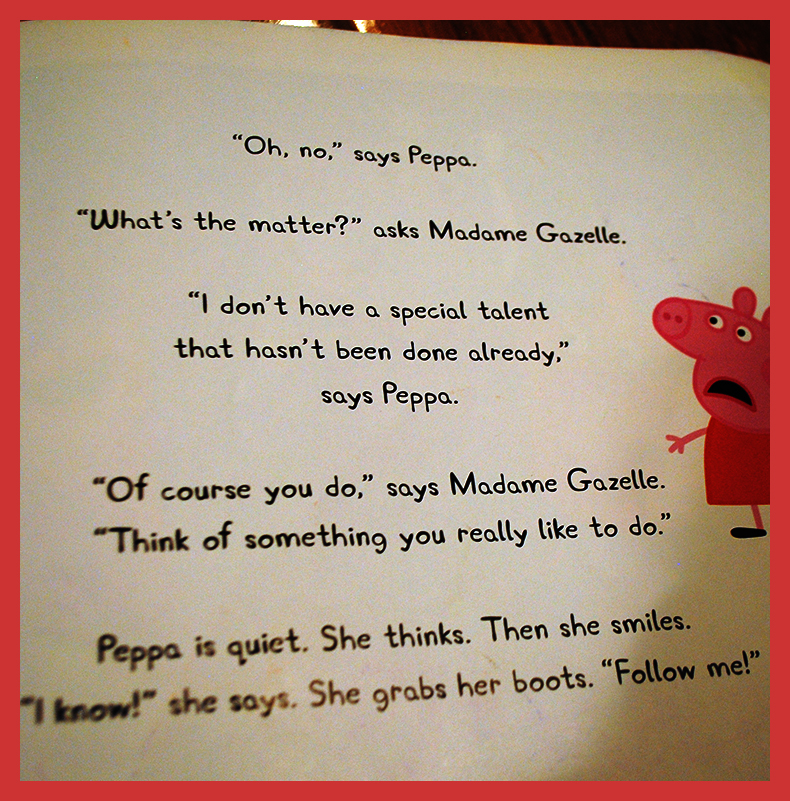 “Oh, no,” says Peppa.
“What’s the matter?” asks Madame Gazelle.
“I don’t have a special talent
that hasn’t been done already,”
says Peppa.
“Of course you do,” says Madame Gazelle.
“Think of something you really like to do.”
Peppa is quiet. She thinks. Then she smiles.
“I know!” she says. She grabs her boots. “Follow me!”